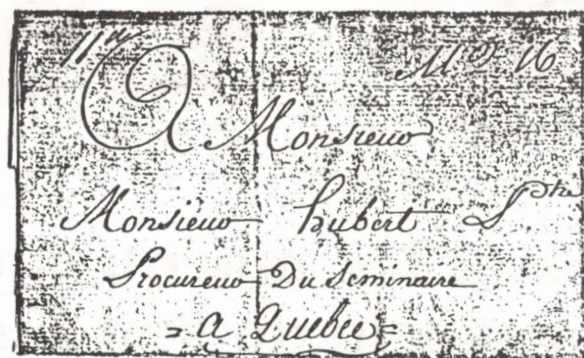 A Monsieur
Monsieur hubert Ptre
Procureur Du Seminaire
= a Quebec =